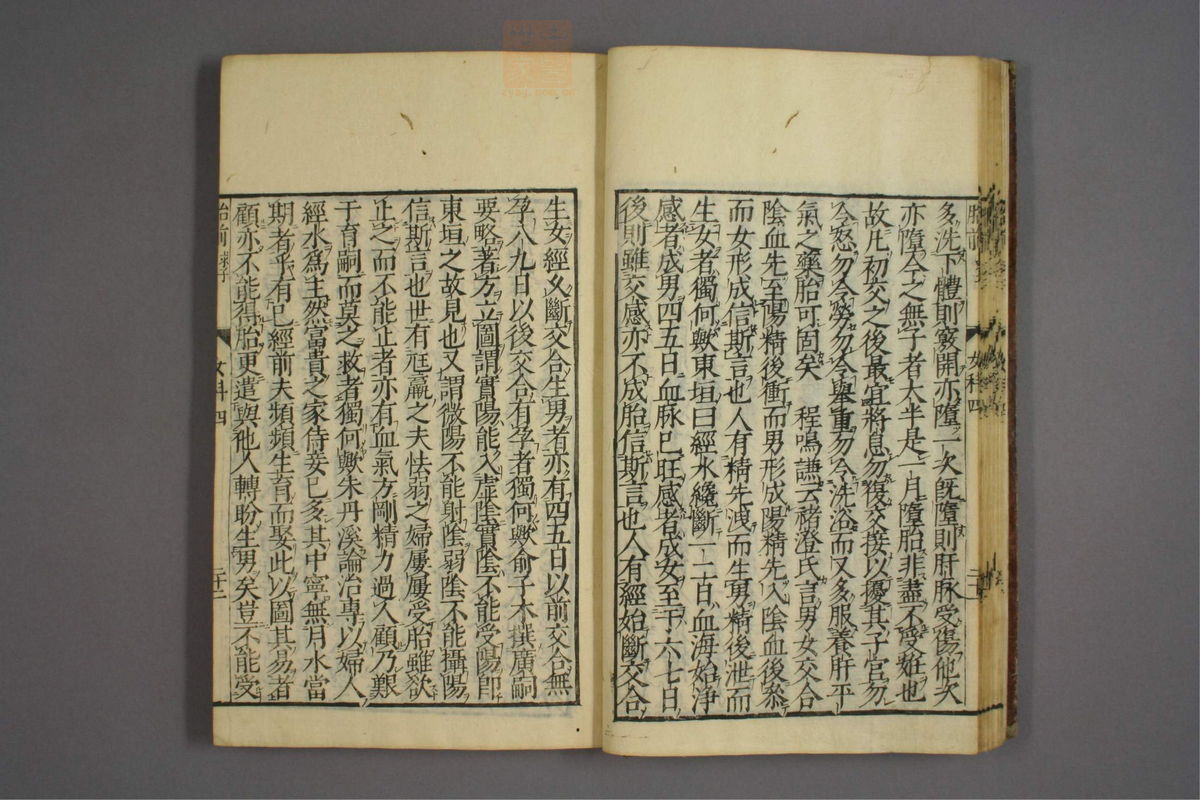 多洗下體則竅開亦墮一次既墮則肝脉受傷他次
亦墮今之無子者太半是一月墮胎非盡不受姙也
故凡初交之後最宜將息勿復交接以擾其子宮勿
令怒勿令勞勿令舉重勿令洗浴而又多服養肝平
氣之藥胎可固矣　程鳴謙云褚澄氏言男女交合
陰血先至陽精後衝而男形成陽精先入陰血後參
而女形成信斯言也人有精先洩而生男精後泄而
生女者獨何歟東垣曰經水纔斷一二日血海始淨
感者成男四五日血脉已旺感者成女至于六七日
後則雖交感亦不成胎信斯言也人有經始斷交合
生女經久斷交合生男者亦有四五日以前交合無
孕八九日以後交合有孕者獨何歟俞子木撰廣嗣
要略著方立圖謂實陽能入虛陰實陰不能受陽即
東垣之故見也又謂微陽不能射陰弱陰不能攝陽
信斯言也世有尫羸之夫怯弱之婦屢屢受胎雖欲
止之而不能止者亦有血氣方剛精力過人顧乃艱
于育嗣而莫之救者獨何歟朱丹溪論治專以婦人
經水爲主然富貴之家侍妾已多其中寧無月水當
期者乎有已經前夫頻頻生育而娶此以圖其易者
顧亦不能得胎更遣與他人轉盼生男矣豈不能受
胎前
女科四
二十二